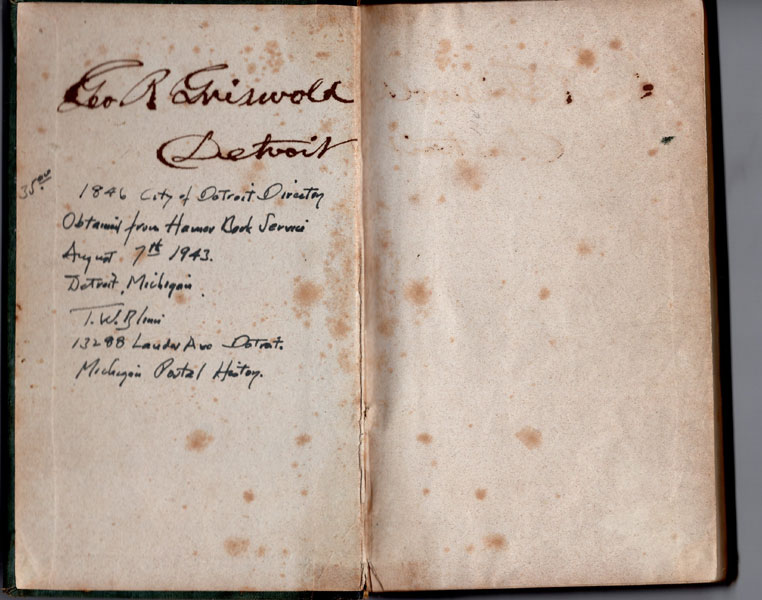 Geo R Griswold
Detroit
35.00
1846 City of Detroit Directory
Obtained from Hamer Book Service
August 7th 1943.
Detroit, Michigan
T. W. Blinn
13288 Lauder Ave Detroit.
Michigan Postal History.